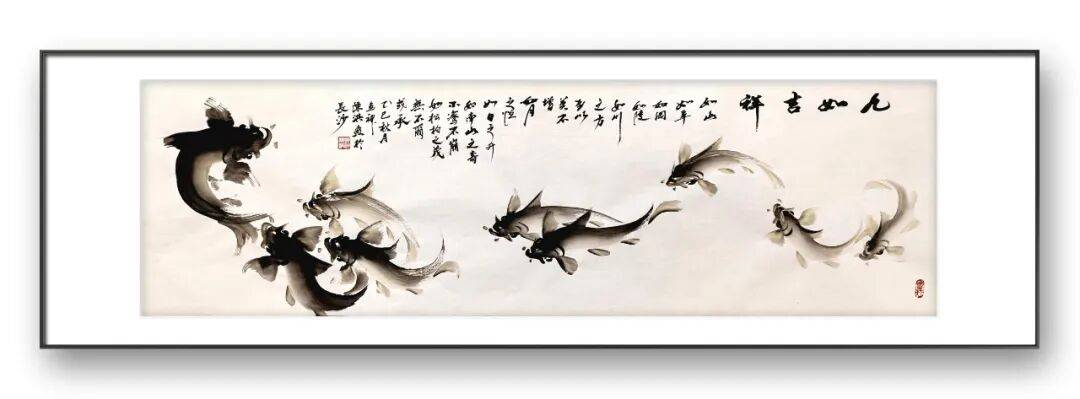 九如吉祥
如山
如阜
如岡
如陵
如川
之方
至以
莫不
增
如月
之恒
如日之升
如南山之壽
不騫不崩
如松柏之茂
無不爾
或承
乙巳秋月
陳洪於
長沙